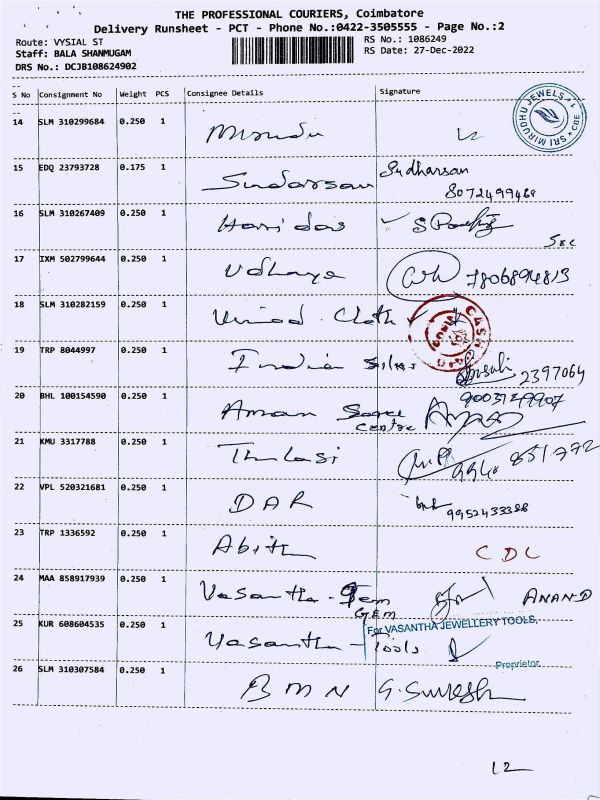 THE PROFESSIONAL COURIERS, Coimbatore
Delivery Runsheet - PCT - Phone No.:0422-3505555 - Page No.:2
Route: VYSIAL ST
RS No.: 1086249
Staff: BALA SHANMUGAM
RS Date: 27-Dec-2022
DRS No.: DCJB108624902
S No Consignment No Weight PCS Consignee Details Signature
14 SLM 310299684 0.250 1
SRI MIRUDHU JEWELS CBE
15 EDQ 23793728 0.175 1 Sudarsan Sudharsan
16 SLM 310267409 0.250 1 Hari das
17 IXM 502799644 0.250 1 Udhaya 7806894813
18 SLM 310282159 0.250 1 Vinod Cloth
CASH
19 TRP 8044997 0.250 1 India Silks
2397064
20 BHL 100154590 0.250 1 Aman Saree
Centre
21 KMU 3317788 0.250 1 Thulasi
22 VPL 520321681 0.250 1 DAR
9952433388
23 TRP 1336592 0.250 1 Abith CDC
24 MAA 858917939 0.250 1 Vasantha - Gem ANAND
GEM
25 KUR 608604535 0.250 1 Vasantha - Tools
For VASANTHA JEWELLERY TOOLS,
Proprietor
26 SLM 310307584 0.250 1 BMN G. Suresh
12